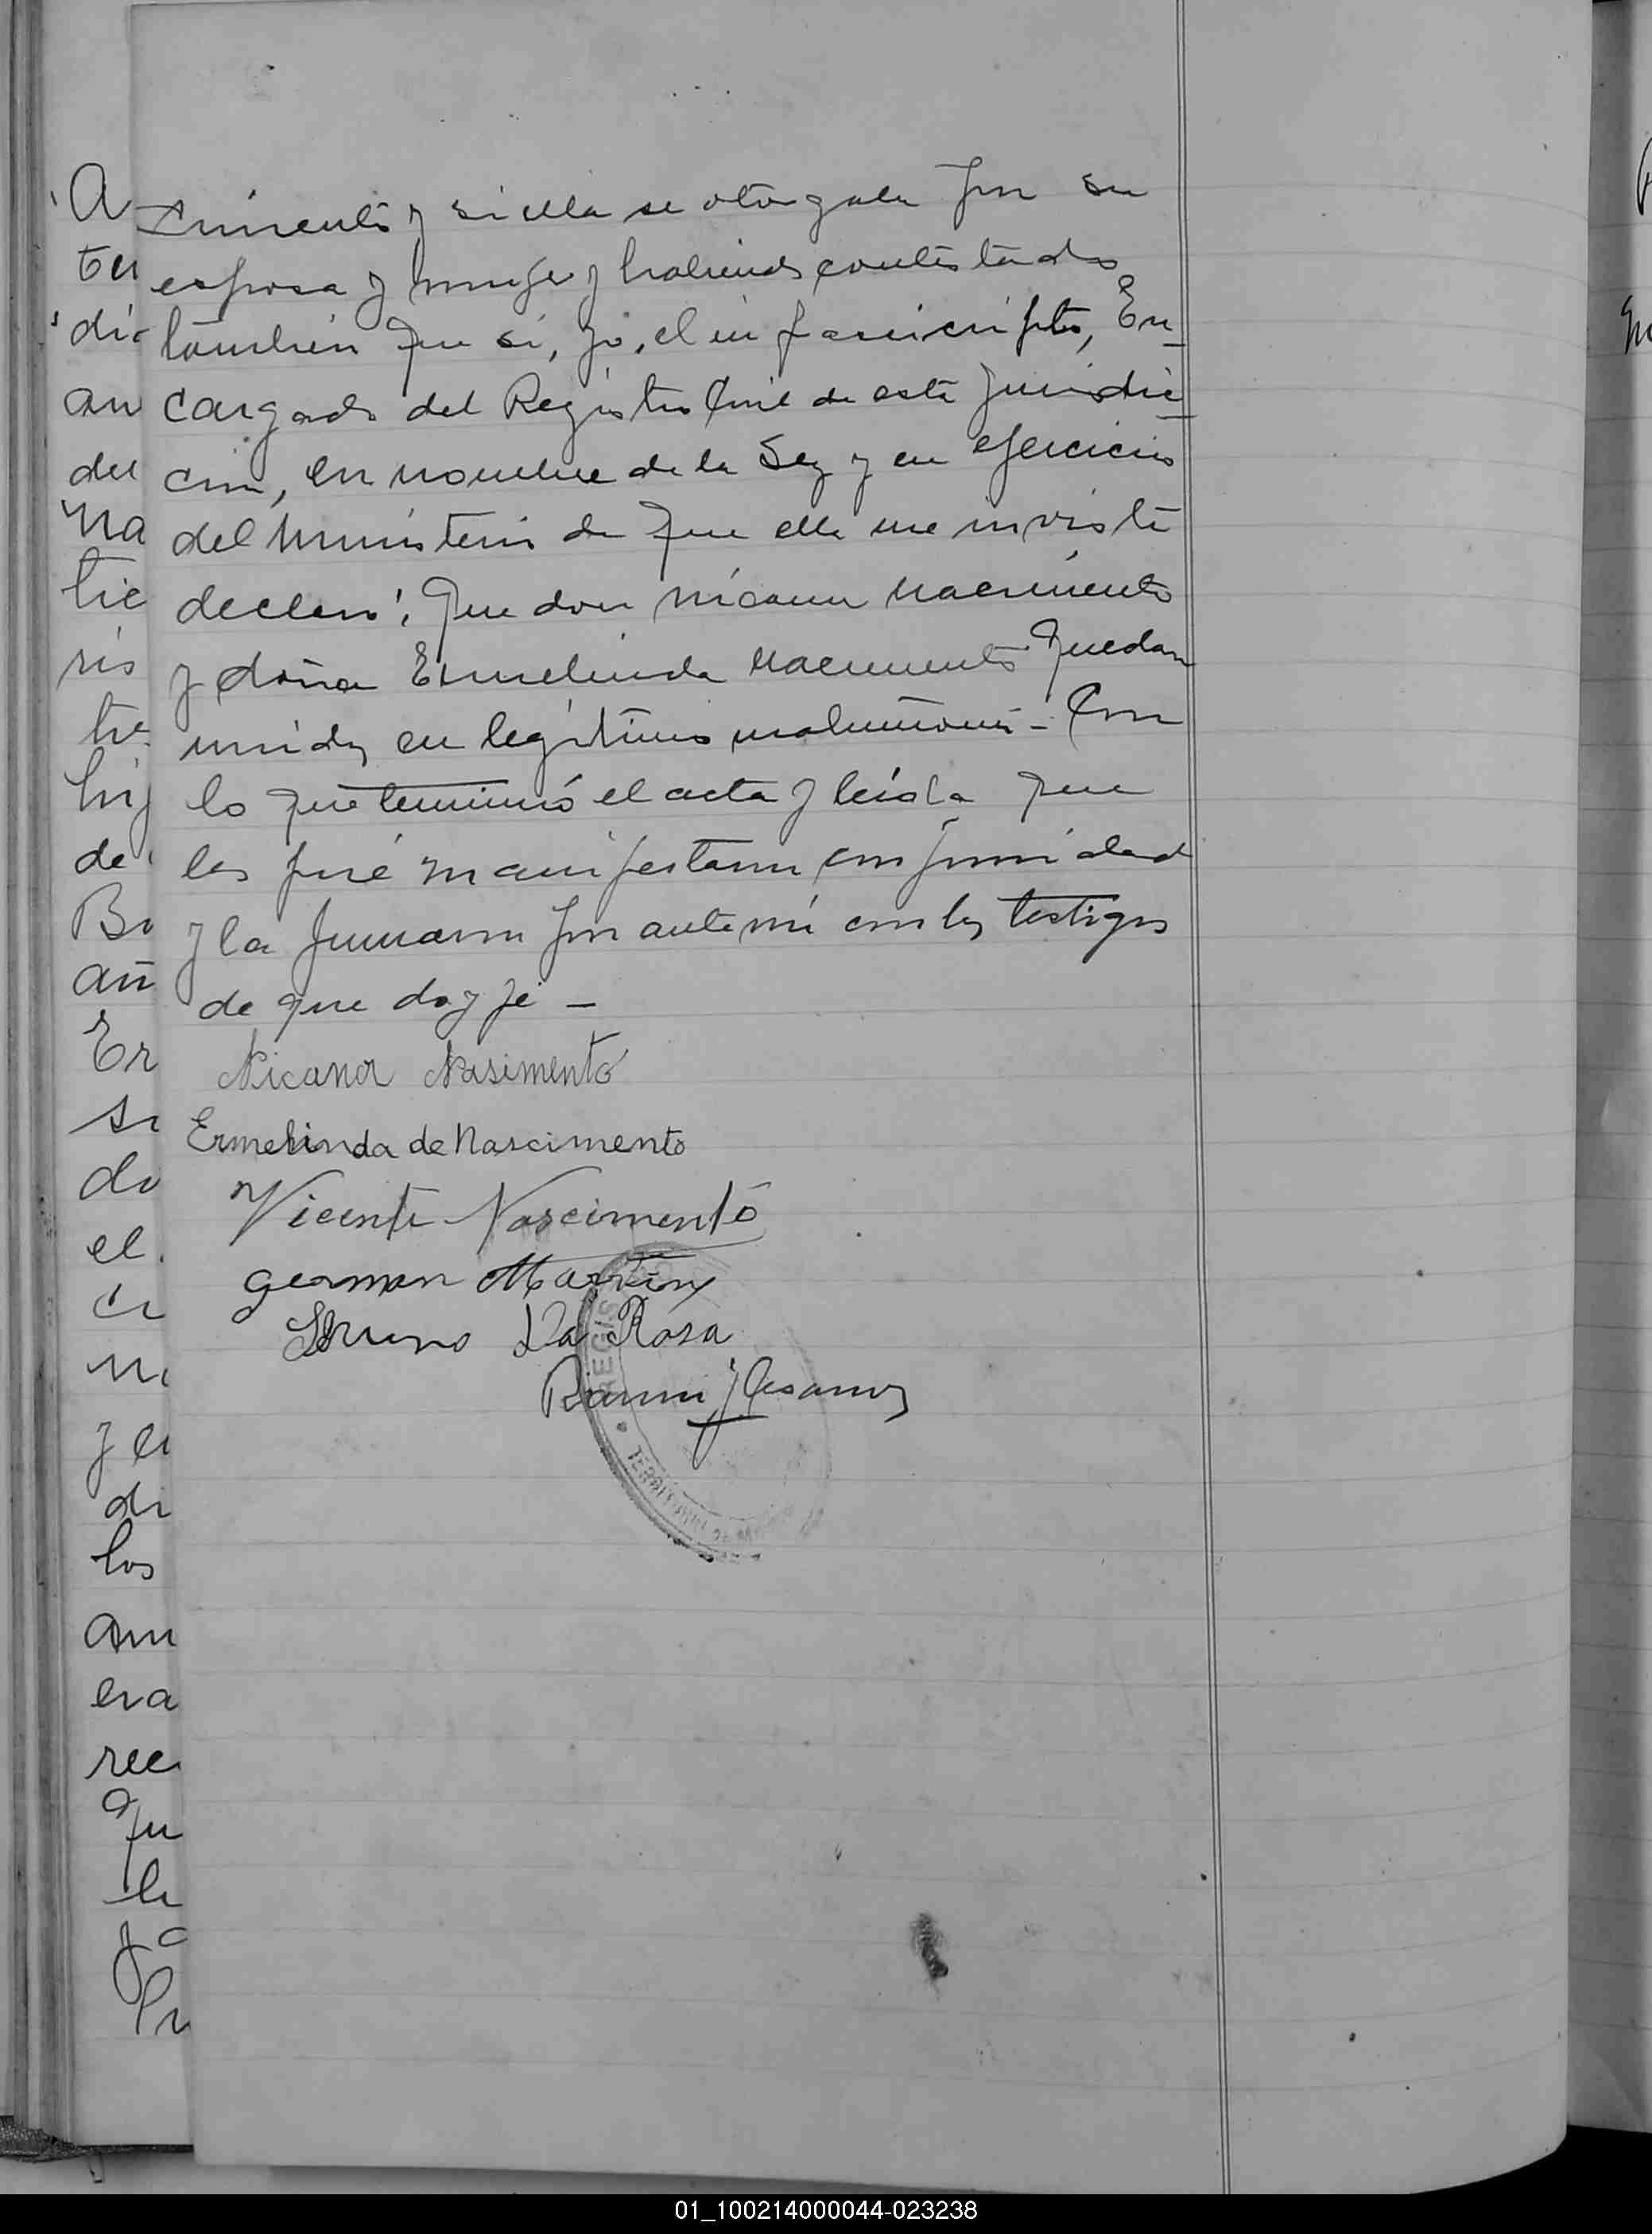 cimiento y si ella se otorgaba por su
esposa y mujer y habiendo contestado
también que si, yo, el infrascripto, En-
cargado del Registro Civil de esta jurisdic-
cion, en nombre de la Ley y en ejercicio
del ministerio de que ella me inviste
declaro: Que don Nicanor Nacimiento
y doña Ermelinda Nacimiento quedan
unidos en legítimo matrimonio - Con
lo que terminó el acta y leída que
les fué manifestaron conformidad
y la firmaron por ante mí con los testigos
de que doy fe -
Nicanor Nasimento
Ermelinda de Nascimento
Vicente Nascimento
German Martinez
Bruno Da Rosa
REGIS
TERRITORIO DE
A
ter
an
del
na
tie
ris
de
Er
do
el
los
era
01_100214000044-023238